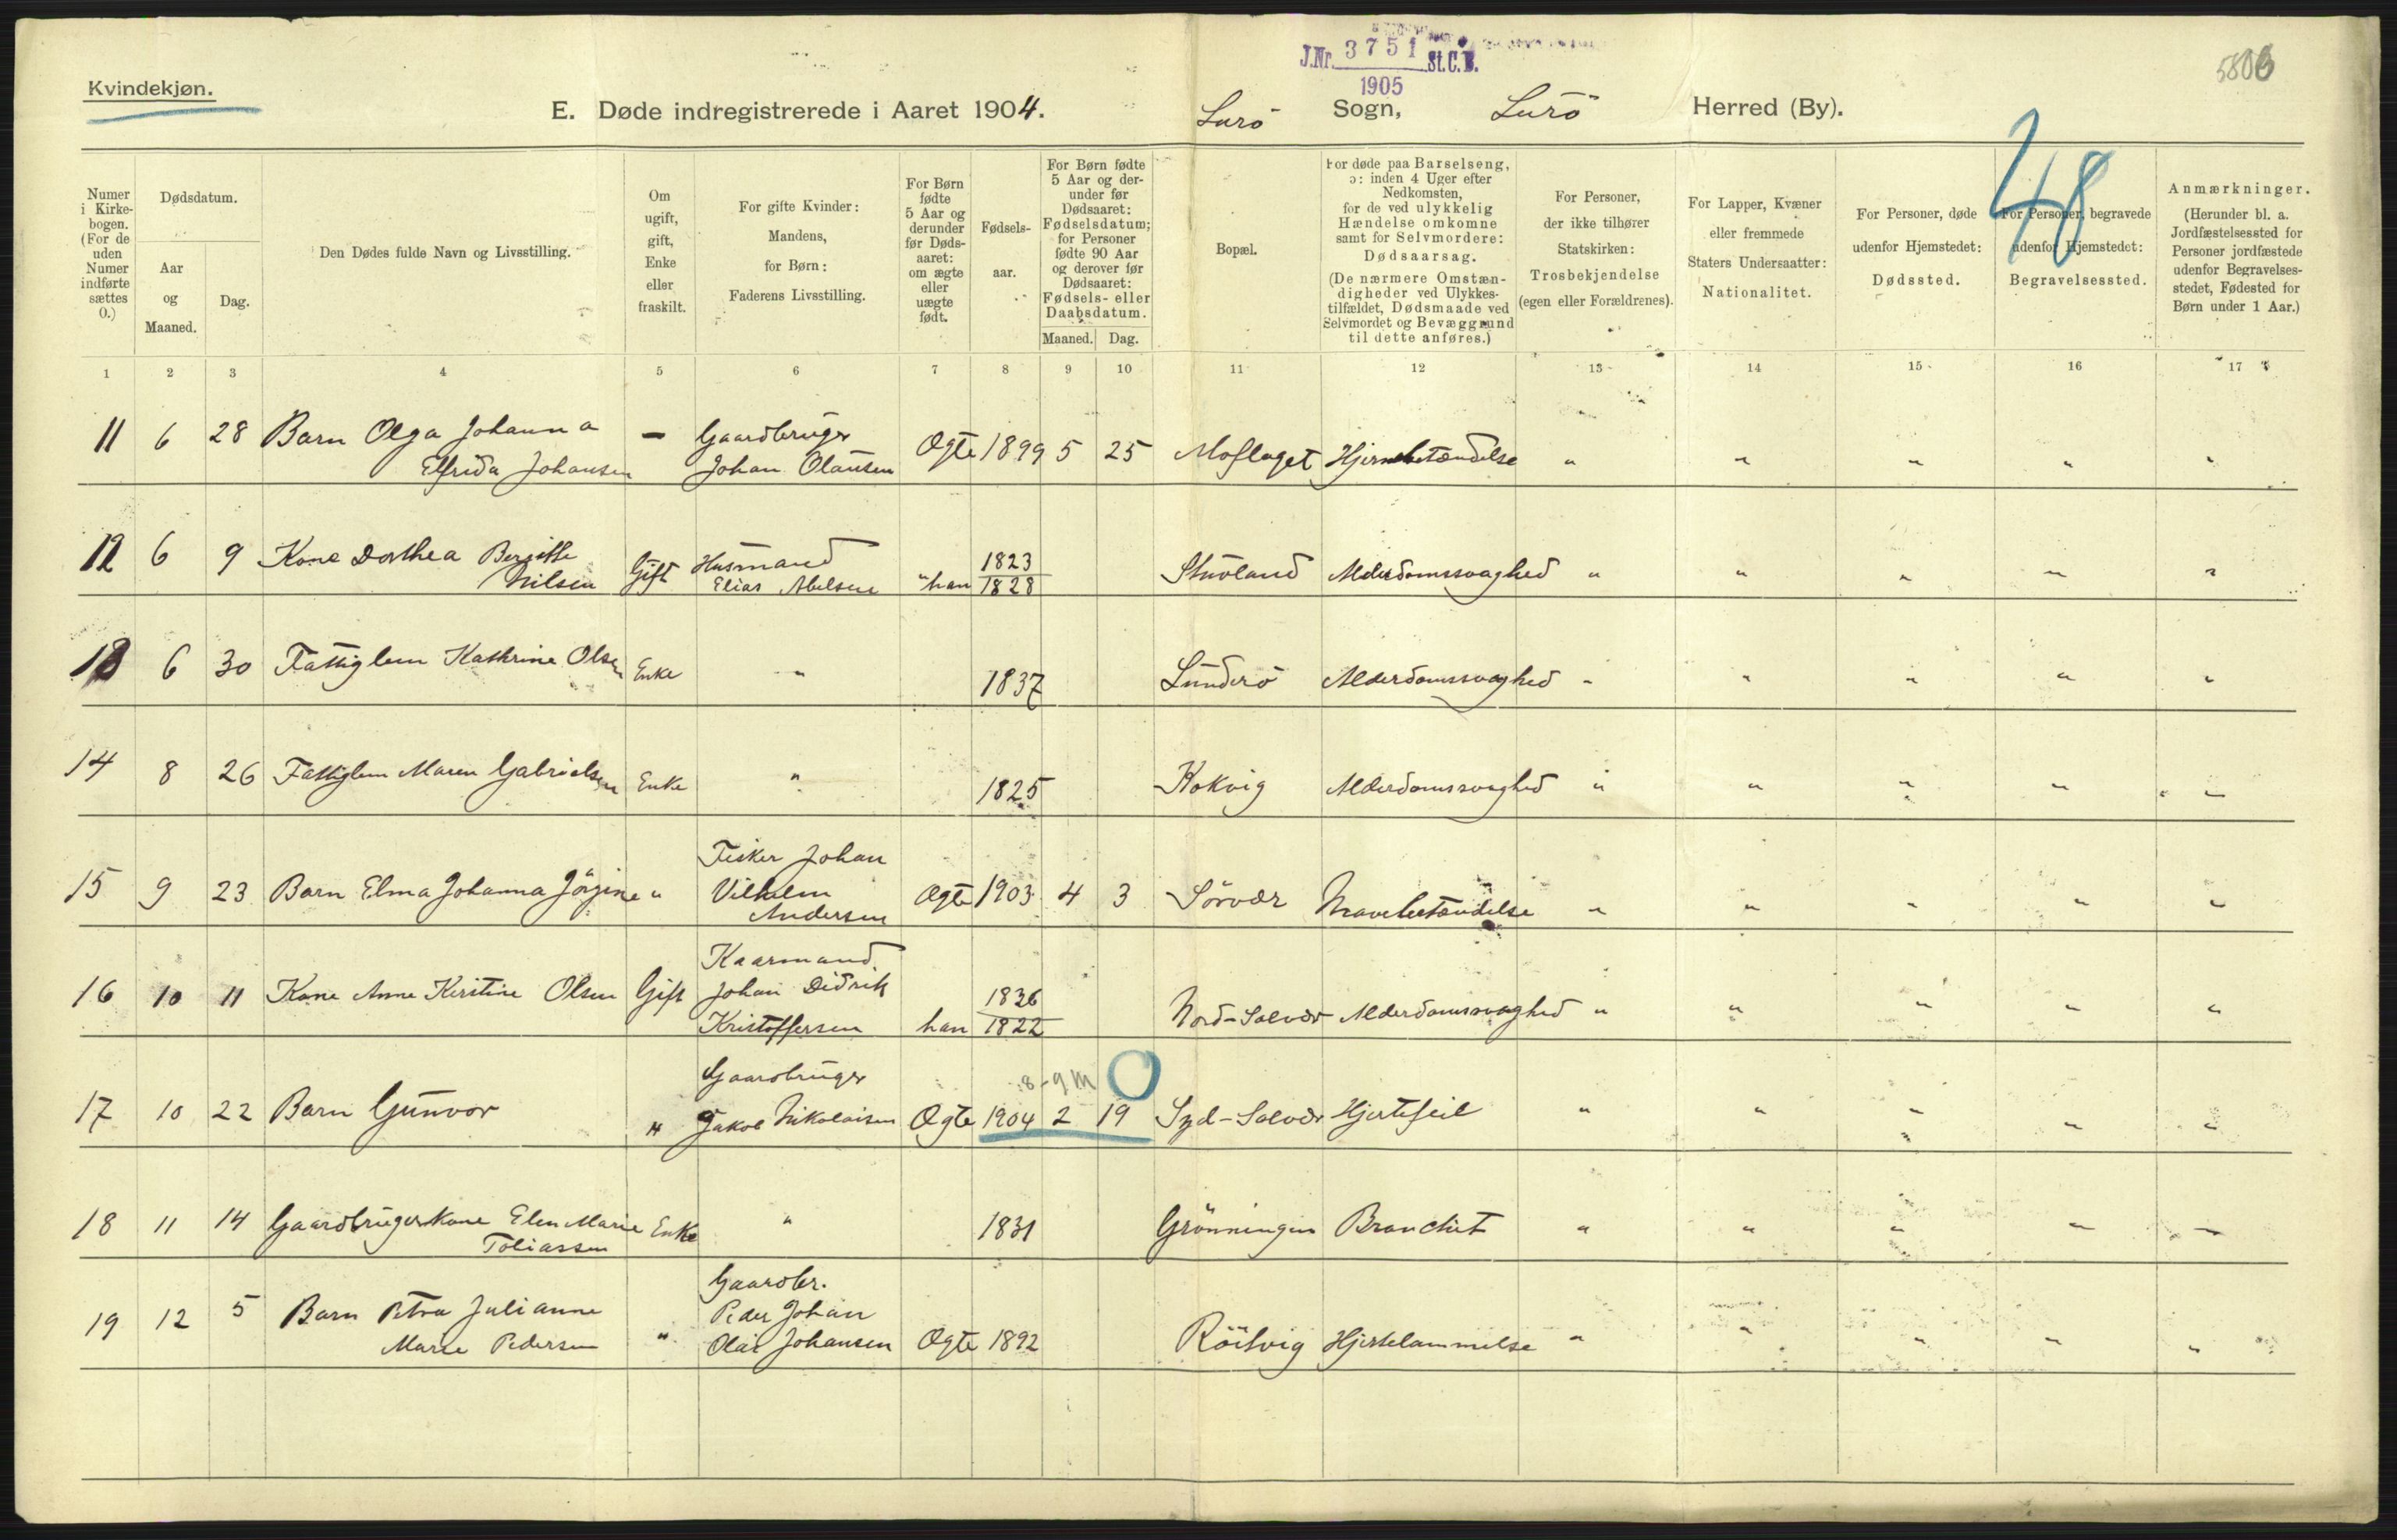 J.Nr. 3751 St.C.B.
1905
5806
Kvindekjøn.
E. Døde indregistrerede i Aaret 1904. Lurö Sogn, Lurö Herred (By).
48
Numer i Kirkebogen. (For de uden Numer indførte sættes 0.)
Dødsdatum.
Aar og Maaned.
Dag.
Den Dødes fulde Navn og Livsstilling.
Om ugift, gift, Enke eller fraskilt.
For gifte Kvinder: Mandens, for Børn: Faderens Livsstilling.
For Børn fødte 5 Aar og derunder før Dødsaaret: om ægte eller uægte født.
Fødselsaar.
For Børn fødte 5 Aar og derunder før Dødsaaret: Fødselsdatum; for Personer fødte 90 Aar og derover før Dødsaaret: Fødsels- eller Daabsdatum.
Maaned. Dag.
Bopæl.
For døde paa Barselseng, ɔ: inden 4 Uger efter Nedkomsten, for de ved ulykkelig Hændelse omkomne samt for Selvmordere: Dødsaarsag. (De nærmere Omstændigheder ved Ulykkestilfældet, Dødsmaade ved Selvmordet og Bevæggrund til dette anføres.)
For Personer, der ikke tilhører Statskirken: Trosbekjendelse (egen eller Forældrenes).
For Lapper, Kvæner eller fremmede Staters Undersaatter: Nationalitet.
For Personer, døde udenfor Hjemstedet: Dødssted.
For Personer, begravede udenfor Hjemstedet: Begravelsessted.
Anmærkninger. (Herunder bl. a. Jordfæstelsessted for Personer jordfæstede udenfor Begravelsesstedet, Fødested for Børn under 1 Aar.)
1 2 3 4 5 6 7 8 9 10 11 12 13 14 15 16 17
11 6 28 Barn Olga Johanna – Gaardbruger
Elfrida Johansen Johan Olausen Ægte 1899 5 25 Moflaget Hjernebetændelse " " " " "
12 6 9 Kone Dorthea Bergitte Gift Husmand 1823
Nilsen Elias Abelsen "han 1828 Stuvland Alderdomssvaghed " " " " "
13 6 30 Fattiglem Kathrine Olsen Enke " 1837 Lunderö Alderdomssvaghed " " " " "
14 8 26 Fattiglem Maren Gabrielsen Enke " 1825 Kokvig Alderdomssvaghed " " " " "
Fisker Johan
15 9 23 Barn Elma Johanna Jörgine " Vilhelm Ægte 1903 4 3 Sörvær Mavebetændelse " " " " "
Andersen
Kaarmand
16 10 11 Kone Anne Kirstine Olsen Gift Johan Didrik 1826
Kristoffersen han 1822 Nord-Solvær Alderdomssvaghed " " " " "
Gaardbruger 8-9 M 0
17 10 22 Barn Gunvor " Jakob Nikolaisen Ægte 1904 2 19 Syd-Solvær Hjertefeil " " " " "
18 11 14 Gaardbrugerkone Elen Marie Enke " 1831 Grönningen Bronchit " " " " "
Tobiassen
Gaardbr.
19 12 5 Barn Petra Julianne Peder Johan
Marie Pedersen " Olai Johansen Ægte 1892 Röitvig Hjertelammelse " " " " "